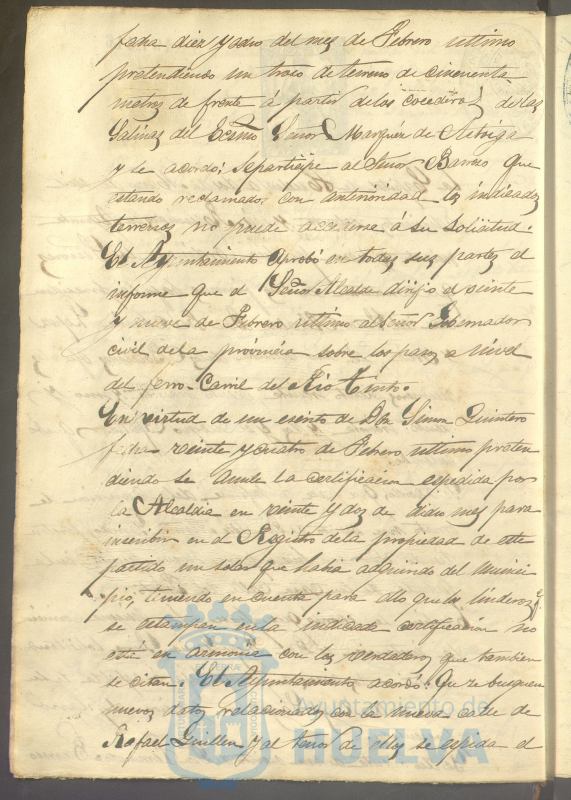 fecha diez y ocho del mes de Febrero ultimo
pretendiendo un trozo de terreno de cincuenta
metros de frente á partir de los cocederos de las
Salinas del Ecsmo Señor Marqués de Astorga
y se acordó: se participe al Señor Barroso que
estando reclamados con anterioridad los indicados
terrenos no puede accederse á su solicitud.
El Ayuntamiento aprobó en todas sus partes el
informe que el Señor Alcalde dirijio el veinte
y nueve de Febrero ultimo al Señor Gobernador
civil de la provincia sobre los pasos a nivel
del ferro-Carril de Rio Tinto.
En virtud de un escrito de Don Simon Quintero
fecha veinte y cuatro de Febrero ultimo preten
diendo se anule la certificacion espedida por
la Alcaldia en veinte y dos de dicho mes para
inscribir en el Registro de la propiedad de este
partido un solar que habia adquirido del Munici
pio, teniendo en cuenta para ello que los linderos q.
se estampan en la indicada certificacion no
está en armonia con los verdaderos que tambien
se citan. El Ayuntamiento acordó: Que se busquen
nuevos datos relacionados con la nueva calle de
Rafael Guillen y al tenor de ellos se espida el
Ayuntamiento de
HUELVA